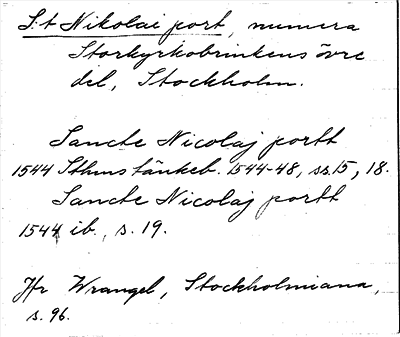 S:t Nikolai port, numera
Storkyrkobrinkens övre
del, Stockholm.
Sancte Nicolaj portt
1544 Sthms tänkeb. 1544-48, ss. 15, 18.
Sancte Nicolaj portt
1544 ib., s. 19.
Jfr Wrangel, Stockholmiana,
s. 96.